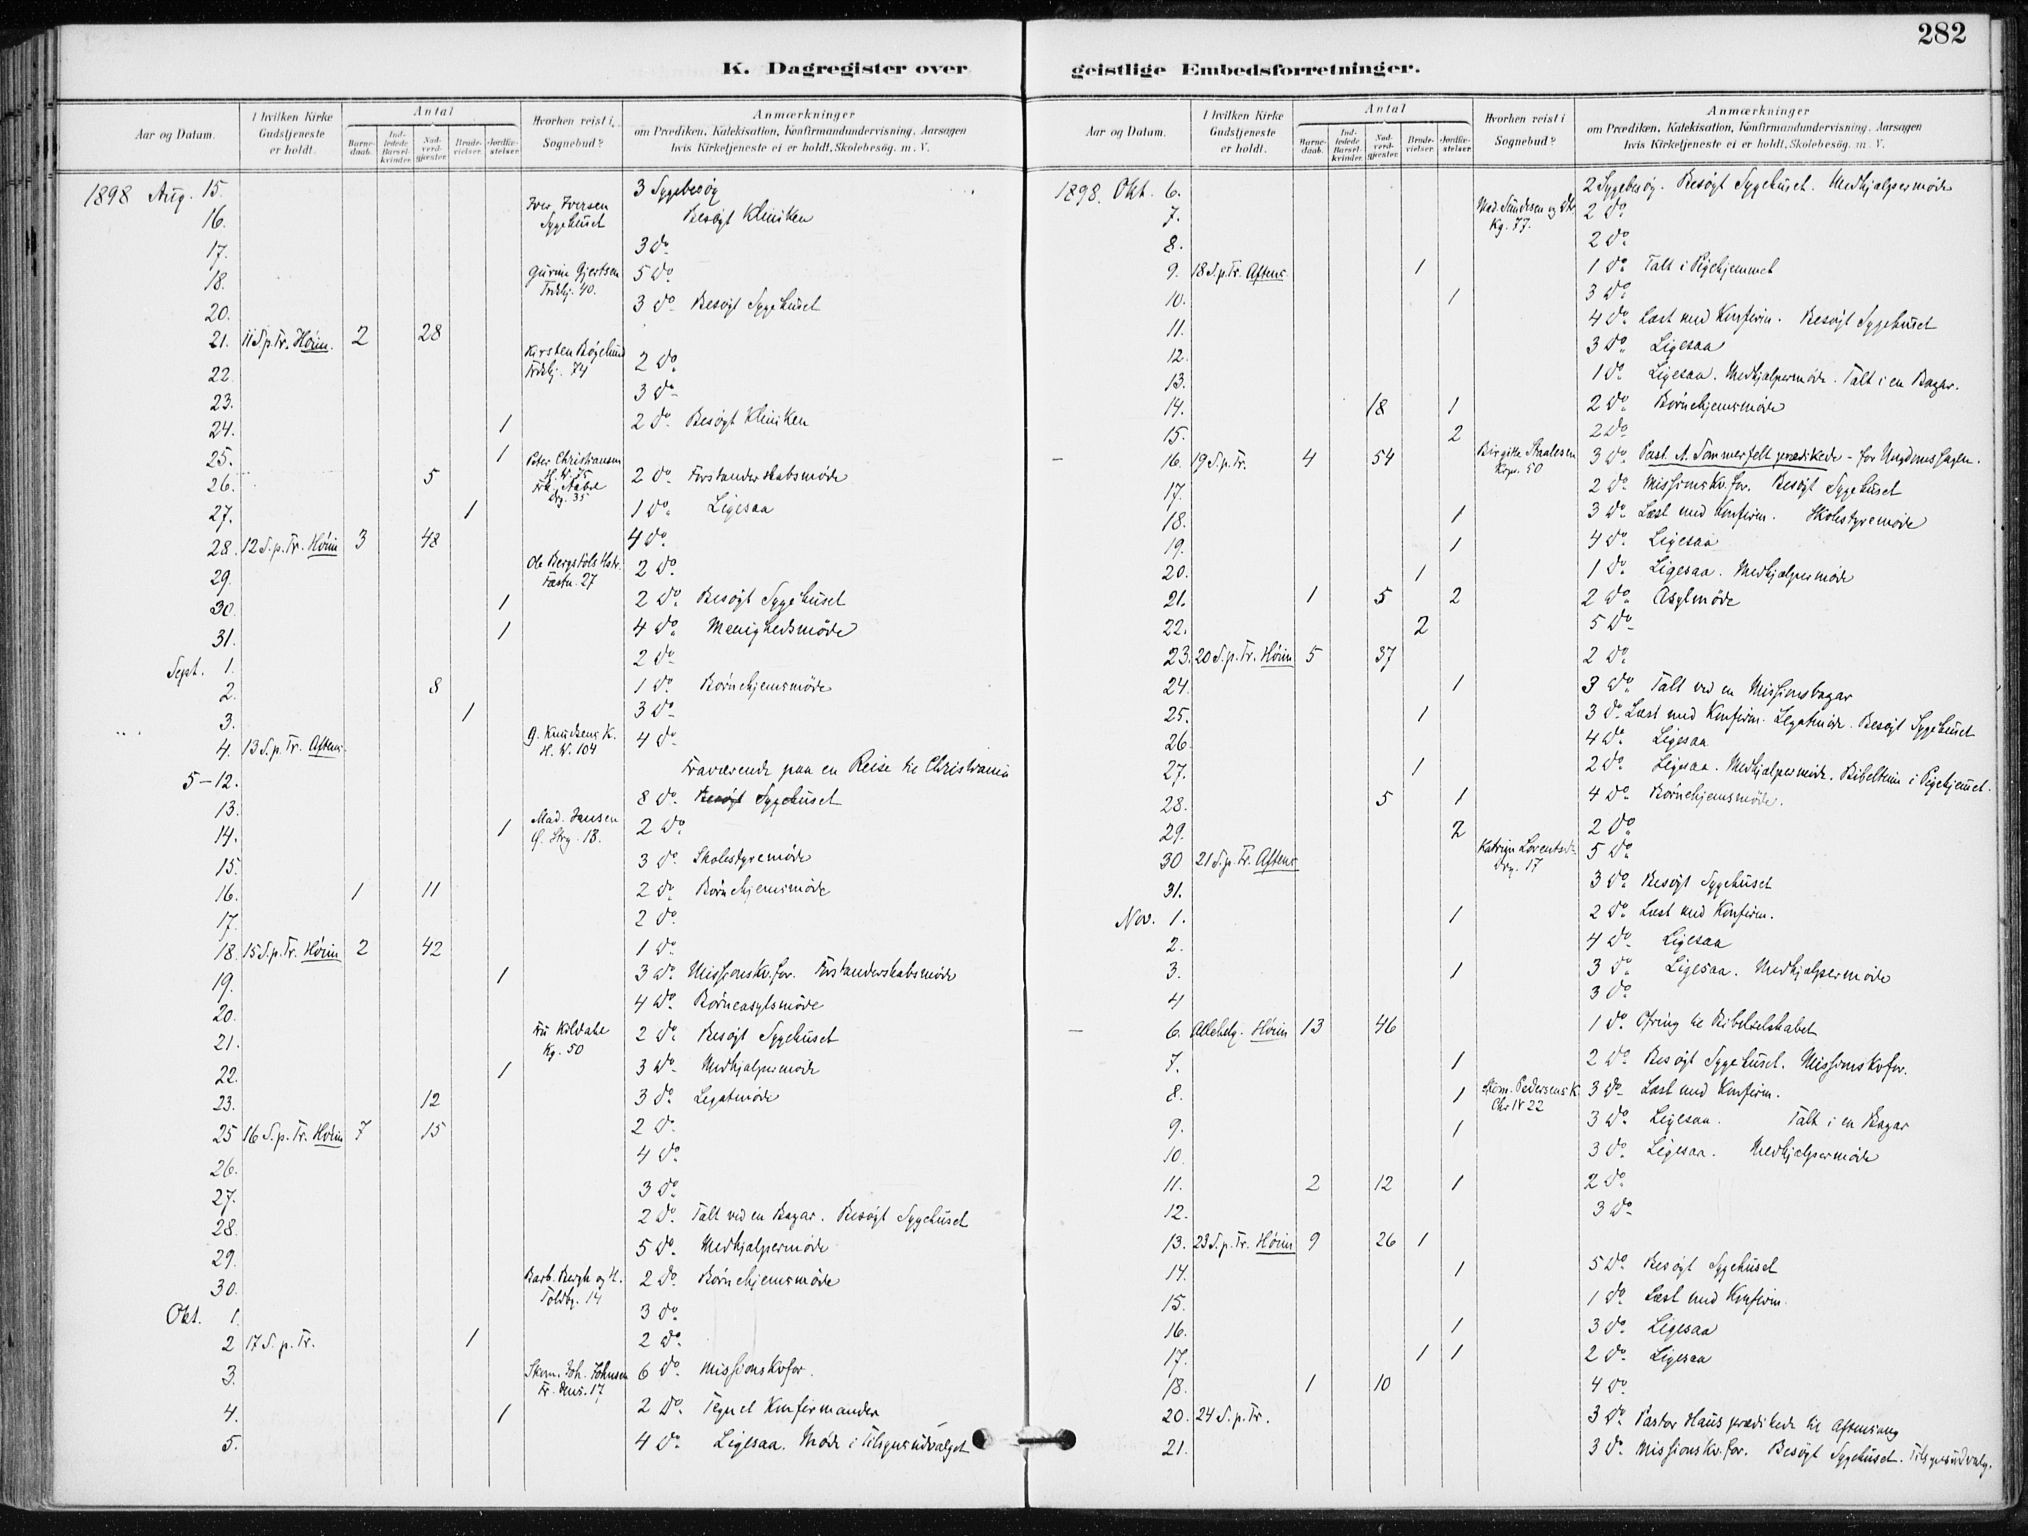 282
K. Dagregister over geistlige Embedsforretninger.
Aar og Datum. | I hvilken Kirke Gudstjeneste er holdt. | Antal | Barnedaab. | Indledede Barselkvinder. | Nadverdgjester. | Brudevielser. | Jordfæstelser. | Hvorhen reist i Sognebud? | Anmærkninger om Prædiken, Katekisation, Konfirmandundervisning, Aarsagen hvis Kirketjeneste ei er holdt, Skolebesög. m. V.
1898 Aug. 15. 3 Sygebesøg
16. Iver Iversen Sygehuset Besøgt Kliniken
17. 3 Do
18. Gurine Gjertsen 40. 5 Do
20. 3 Do Besøgt Sygehuset
21. 11 S. p. Tr. Høim. 2 28
22. Kirsten 74 2 Do
23. 3 Do
24. 1 2 Do Besøgt Kliniken
25. 1 Peter Christiansen
26. 5 Drg. 35 2 Do Forstanderskabsmøde
27. 1 1 Do Ligesaa
28. 12 S. p. Tr. Høim 3 48 4 Do
29. Ole 27 2 Do
30. 1 2 Do Besøgt Sygehuset
31. 1 4 Do Menighedsmøde
Sept. 1. 2 Do
2. 8 1 Do Børnehjemsmøde
3. 1 3 Do
4. 13 S. p. Tr. Aftens. G. Knudsens K. H. W. 104 4 Do
5-12. Fraværende paa en Reise til Christiania
13. 8 Do Besøgt Sygehuset
14. 1 Mad. Jansen Ø. Strg. 18. 2 Do
15. 3 Do Skolestyremøde
16. 1 11 2 Do Børnehjemsmøde
17. 2 Do
18. 15 S. p. Tr. Høim 2 42 1 Do
19. 1 3 Do Missionskv.for. Forstanderskabsmøde
20. 4 Do Børneasylsmøde
21. Fru Kildahl Kg. 50 2 Do Besøgt Sygehuset
22. 1 3 Do Medhjælpermøde
23. 12 3 Do Legatmøde
25 16 S. p. Tr. Høim 7 15 2 Do
26. 4 Do
27. 3 Do
28. 2 Do Talt ved en Bazar. Besøgt Sygehuset
29. 5 Do Medhjælpermøde
30. Barb. Bergh og H. Toldbg. 14 2 Do Børnehjemsmøde
Okt. 1. 3 Do
2 17 S. p. Tr. 1 2 Do
3. Skom. Joh. Johnsen 17 6 Do Missionskvfor.
4. 1 2 Do Tegnet Konfirmander
5. 4 Do Ligesaa. Møde i Tilsynsudvalget
Aar og Datum. | I hvilken Kirke Gudstjeneste er holdt. | Antal | Barnedaab. | Indledede Barselkvinder. | Nadverdgjester. | Brudevielser. | Jordfæstelser. | Hvorhen reist i Sognebud? | Anmærkninger om Prædiken, Katekisation, Konfirmandundervisning, Aarsagen hvis Kirketjeneste ei er holdt, Skolebesög. m. V.
1898. Okt. 6. 2 Sygebesøg. Besøgt Sygehuset. Medhjælpermøde
7. Mad. Kg. 77. 2 Do
8. 2 Do
9. 18 S. p. Tr. Aftens. 1 1 Do Talt i Pigehjemmet
10. 1 3 Do
11. 4 Do Læst med Konfirm. Besøgt Sygehuset
12. 3 Do Ligesaa
13. 1 Do Ligesaa. Medhjælpermøde. Talt i en Bazar.
14. 18 1 2 Do Børnehjemsmøde
15. 2 2 Do
16. 19 S. p. Tr. 4 54 Birgitte 50 3 Do Past. A. Sommerfelt prædikede - for Ungdomssagen.
17. 2 Do Missionskv.for. Besøgt Sygehuset
18. 1 3 Do Læst med Konfirm. Skolestyremøde
19. 1 4 Do Ligesaa
20. 1 1 Do Ligesaa. Medhjælpermøde
21. 1 5 2 2 Do Asylmøde
22. 2 5 Do
23. 20 S. p. Tr. Høim 5 37 2 Do
24. 1 3 Do Talt ved en Missionsbazar
25. 1 3 Do Læst med Konfirm. Legatmøde. Besøgt Sygehuset
26. 4 Do Ligesaa
27. 1 2 Do Ligesaa. Medhjælpermøde. Bibeltime i Pigehjemmet.
28. 5 1 4 Do Børnehjemsmøde.
29. 2 2 Do
30 21 S. p. Tr. Aftens Katrine Lorents. Drg. 17 5 Do
31. 3 Do Besøgt Sygehuset
Nov. 1. 1 2 Do Læst med Konfirm.
2. 4 Do Ligesaa
3. 1 3 Do Ligesaa. Medhjælpermøde
4 3 Do
6. Allehelg. Høim 13 46 1 Do Ofring til Bibelselskabet
7. 1 2 Do Besøgt Sygehuset. Missionskvfor.
8. 1 Skom. Pedersens K. Chr IV 22 3 Do Læst med Konfirm.
9. 1 3 Do Ligesaa. Talt i en Bazar
10. 3 Do Ligesaa. Medhjælpermøde
11. 2 12 1 2 Do
12. 3 Do
13. 23 S. p. Tr. Høim 9 26 1
14. 1 5 Do Besøgt Sygehuset
15. 1 Do Læst med Konfirm.
16. 1 3 Do Ligesaa
17. 1 1 2 Do Ligesaa
18. 1 10 4 Do
20. 24 S. p. Tr. 3 Do Pastor Haus prædikede til Aftensang
21. 3 Do Missionskv.for. Besøgt Sygehuset. Tilsynsudvalg.